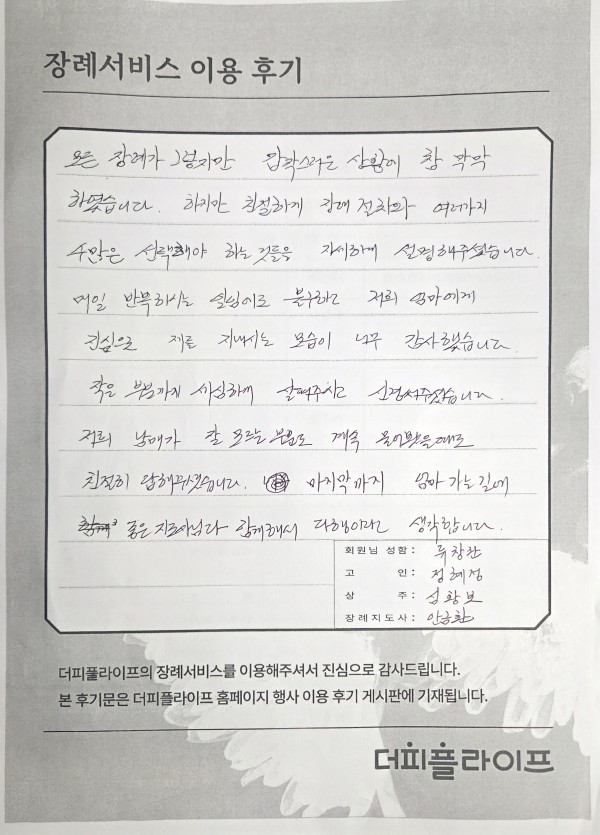 장례서비스 이용 후기
모든 장례가 그렇지만 갑작스러운 상황에 참 막막
하였습니다. 하지만 친절하게 장례 절차와 여러가지
수많은 선택해야 하는 것들을 자세하게 설명해주셨습니다.
매일 반복하시는 일임에도 불구하고 저희 엄마에게
진심으로 제를 지내시는 모습이 너무 감사했습니다.
작은 부분까지 세심하게 살펴주시고 신경써주셨습니다.
저희 남매가 잘 모르는 부분도 계속 물어봤을때도
친절히 답해주셨습니다. 마지막까지 엄마 가는길에
좋은 지도사님과 함께해서 다행이라고 생각합니다.
회원님 성함: 류창찬
고 인: 정혜정
상 주: 섭황보
장례지도사: 안금환
더피플라이프의 장례서비스를 이용해주셔서 진심으로 감사드립니다.
본 후기문은 더피플라이프 홈페이지 행사 이용 후기 게시판에 기재됩니다.
더피플라이프